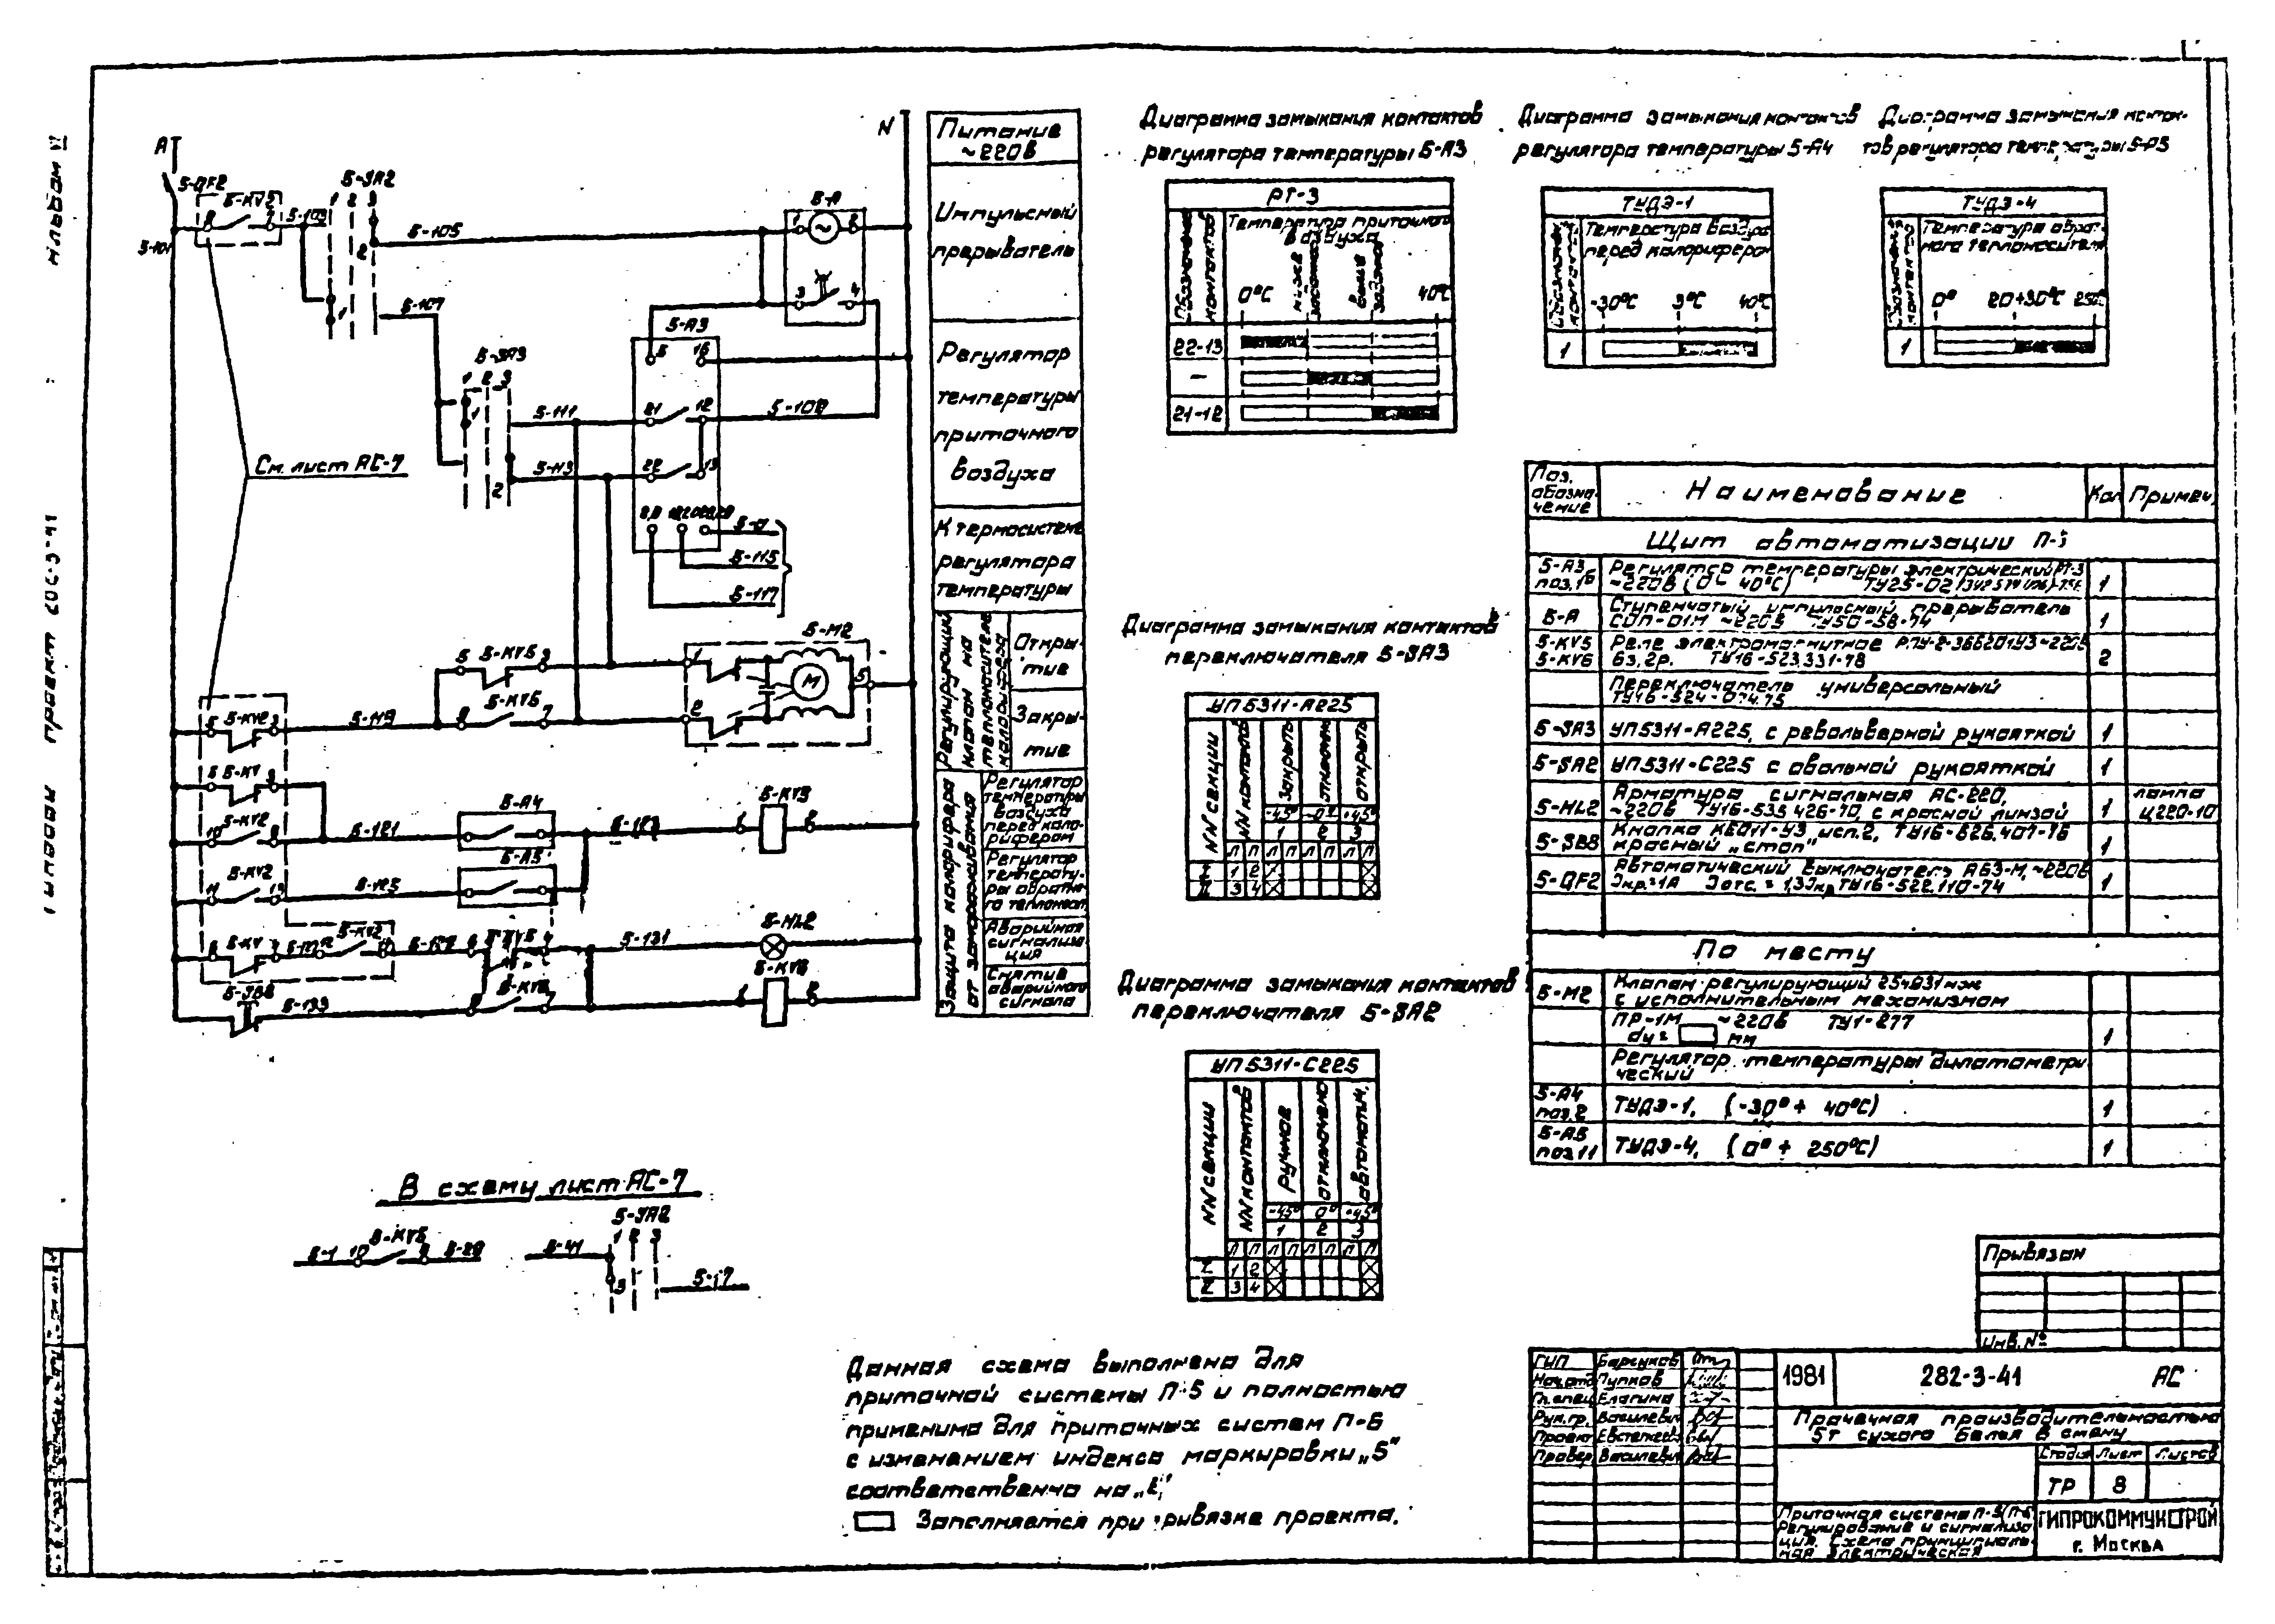 А
N
5-QF2
5-KV2
5-103
5-101
5-SA2
1 2 3
5-105
5-107
5-А
5-А3
5-SA3
1 2 3
5-111
21
12
5-109
5-113
22
13
См. лист АС-7
5-0
5-115
5-117
5-М2
М
5 5-KV5 3
5-KV5
5-KV2
5-119
5-KV
5-KV2
5-121
5-А4
5-123
5-KV5
5-А5
5-KV2
5-125
5-KV
5-KV2
5-HL2
5-131
5-KV6
5-SB8
5-133
5-KV6
Питание
~220В
Импульсный
прерыватель
Регулятор
температуры
приточного
воздуха
К термосистеме
регулятора
температуры
Регулирующий
клапан на
теплоносителе
калорифера
Откры-
тие
Закры-
тие
Защита калорифера
от замораживания
Регулятор
температуры
воздуха
перед кало-
рифером
Регулятор
температу-
ры обратно-
го теплоносит.
Аварийная
сигнализа-
ция
Снятие
аварийного
сигнала
В схему лист АС-7
5-1 10 5-KV5 9 5-29
5-41
5-SA2
1 2 3
3
5-17
Диаграмма замыкания контактов
регулятора температуры 5-А3
РТ-3
Обозначение
контактов
Температура приточного
воздуха
0°С
ниже
заданной
выше
заданной
40°С
22-13
—
21-12
Диаграмма замыкания контактов
регулятора температуры 5-А4
ТУДЭ-1
Обозначен.
контактов
Температура воздуха
перед калорифером
-30°С 3°С 40°С
1
Диаграмма замыкания контак-
тов регулятора температуры 5-А5
ТУДЭ-4
Обозначен.
контактов
Температура обрат-
ного теплоносителя
0° 20÷30°С 250°
1
Диаграмма замыкания контактов
переключателя 5-SA3
УП5311-А225
NN секции
NN контактов
закрыть
отключено
открыть
-45° 0° +45°
1 2 3
Л П Л П Л П Л П
I 1 2
II 3 4
Диаграмма замыкания контактов
переключателя 5-SA2
УП5311-С225
NN секции
NN контактов
ручное
отключено
автоматич.
-45° 0° +45°
1 2 3
Л П Л П Л П Л П
I 1 2
II 3 4
Поз.
обозна-
чение
Наименование
Кол
Примеч.
Щит автоматизации П-5
5-А3
поз.1б
Регулятор температуры электрический РТ-3
~220В (0 ÷ 40°С)
1
5-А
Ступенчатый импульсный прерыватель
СИП-01М ~220В ТУ50-58-74
1
5-KV5
5-KV6
Реле электромагнитное РПУ-2-36620УЗ ~220В
6з, 2р. ТУ16-523.331-78
2
Переключатель универсальный
ТУ16-524.074.75
5-SA3 УП5311-А225, с револьверной рукояткой 1
5-SA2 УП5311-С225 с овальной рукояткой 1
5-HL2
Арматура сигнальная АС-220,
~220В ТУ16-535.426-70, с красной линзой
1
лампа
Ц220-10
5-SB8
Кнопка КЕ011-УЗ исп.2, ТУ16-526.407-76
красный „стоп"
1
5-QF2
Автоматический выключатель АБЗ-М, ~220В
Iнр=1А Iотс.=1,3Iнр ТУ16-522.110-74
1
По месту
5-М2
Клапан регулирующий 25ч931нж
с исполнительным механизмом
ПР-1М ~220В ТУ1-277
dу= мм
1
Регулятор температуры дилатометри
ческий
5-А4
поз.2
ТУДЭ-1, (-30° ÷ 40°С)
1
5-А5
поз.11
ТУДЭ-4, (0° ÷ 250°С)
1
Данная схема выполнена для
приточной системы П-5 и полностью
применима для приточных систем П-6
с изменением индекса маркировки „5"
соответственно на „6"
Заполняется при привязке проекта.
Привязан
Инв. №
ГИП Барсуков
Нач.отд Пупков
Гл.спец Елагина
Рук.гр. Василевич
Проект
Провер Василевич
1981
282-3-41
АС
Прачечная производительностью
5т сухого белья в смену
Стадия Лист Листов
ТР 8
Приточная система П-5(П-6)
Регулирование и сигнализа
ция. Схема принципиаль-
ная электрическая
ГИПРОКОММУНСТРОЙ
г. Москва